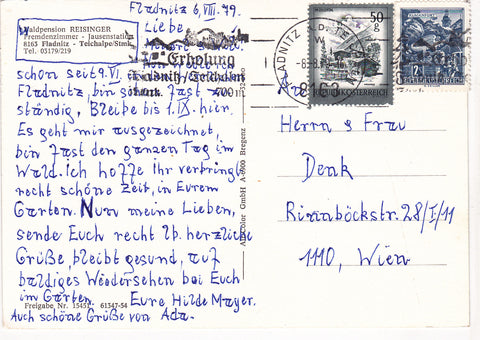 Fladnitz 6,VIII.79.
Waldpension REISINGER
Fremdenzimmer - Jausenstation
8163 Fladnitz - Teichalpe/Stmk.
Tel. 03179/219
Liebe
Erholung
700 m
schon seit 9.VI
Fladnitz, bin schon fast
ständig, Bleibe bis 1.IX. hier.
Es geht mir ausgezeichnet,
bin fast den ganzen Tag im
Wald. Ich hoffe Ihr verbringt
recht schöne Zeit, in Eurem
Garten. Nun meine Lieben,
sende Euch recht lb. herzliche
Grüße, bleibt gesund, auf
baldiges Wiedersehen bei Euch
im Garten. Eure Hilde Mayer.
Freigabe Nr. 15451 61347-54
Auch schöne Grüße von Ada.
GmbH A-6900 Bregenz
FLADNITZ
8163
50
g
REPUBLIK ÖSTERREICH
Herrn & Frau
Denk
Rinnböckstr. 28/I/11
1110, Wien